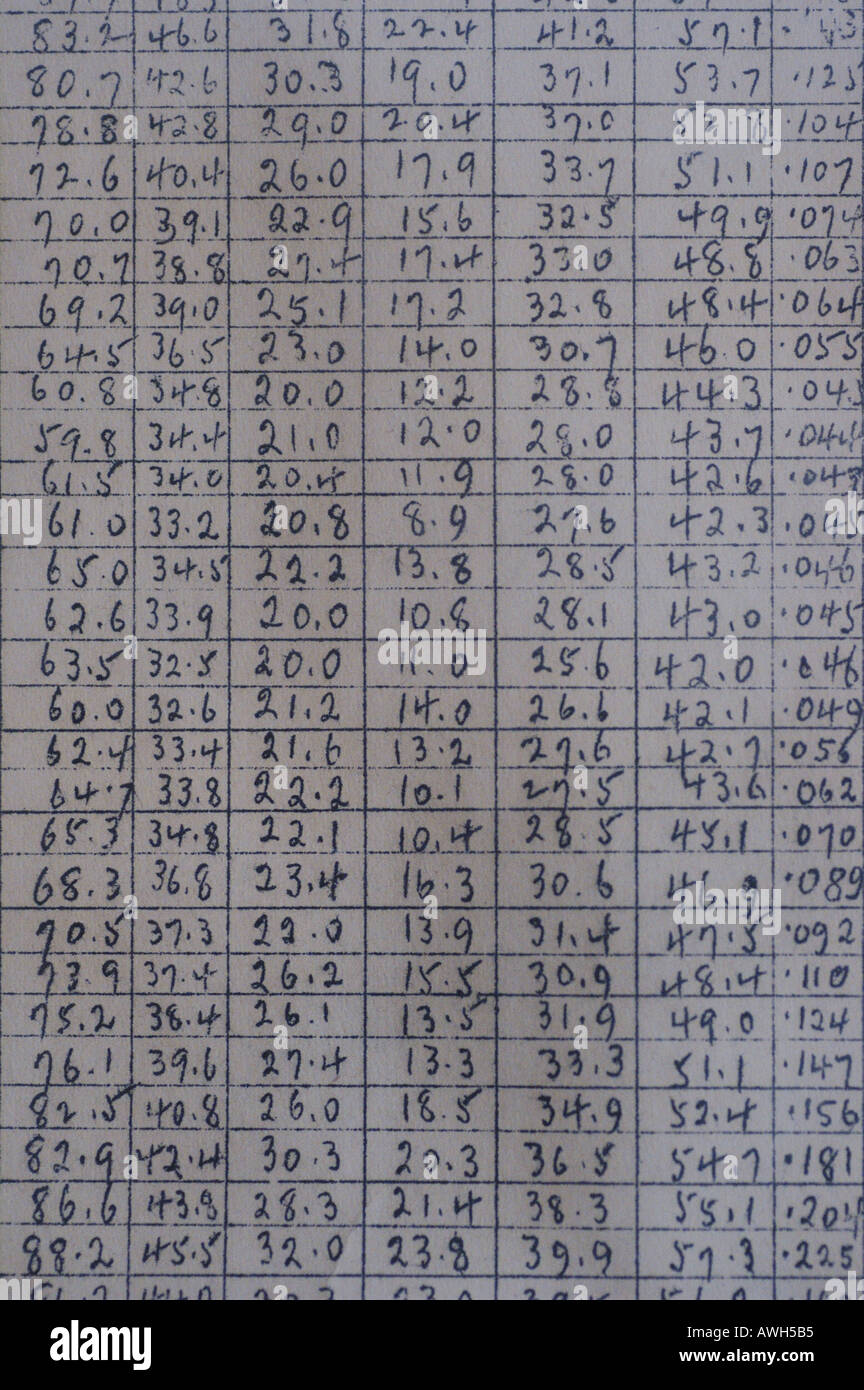 83.2 46.6 31.8 22.4 41.2 57.1
80.7 42.6 30.3 19.0 37.1 53.7 .125
78.8 42.8 29.0 20.4 37.0 .104
72.6 40.4 26.0 17.9 33.7 51.1 .107
70.0 39.1 22.9 15.6 32.5 49.9 .074
70.7 38.8 27.4 17.4 33.0 48.8 .063
69.2 39.0 25.1 17.2 32.8 48.4 .064
64.5 36.5 23.0 14.0 30.7 46.0 .055
60.8 34.8 20.0 12.2 28.8 44.3
59.8 34.4 21.0 12.0 28.0 43.7 .044
61.5 34.0 20.4 11.9 28.0 42.6 .043
61.0 33.2 20.8 8.9 27.6 42.3 .045
65.0 34.5 22.2 13.8 28.5 43.2 .046
62.6 33.9 20.0 10.8 28.1 43.0 .045
63.5 32.5 20.0 11.0 25.6 42.0 .046
60.0 32.6 21.2 14.0 26.6 42.1 .049
62.4 33.4 21.6 13.2 27.6 42.7 .056
64.7 33.8 22.2 10.1 27.5 43.6 .062
65.3 34.8 22.1 10.4 28.5 45.1 .070
68.3 36.8 23.4 16.3 30.6 .089
70.5 37.3 22.0 13.9 31.4 47.5 .092
73.9 37.4 26.2 15.5 30.9 48.4 .110
75.2 38.4 26.1 13.5 31.9 49.0 .124
76.1 39.6 27.4 13.3 33.3 51.1 .147
82.5 40.8 26.0 18.5 34.9 52.4 .156
82.9 42.4 30.3 20.3 36.5 54.7 .181
86.6 43.8 28.3 21.4 38.3 55.1 .204
88.2 45.5 32.0 23.8 39.9 57.3 .225
alamy
Image ID: AWH5B5
www.alamy.com